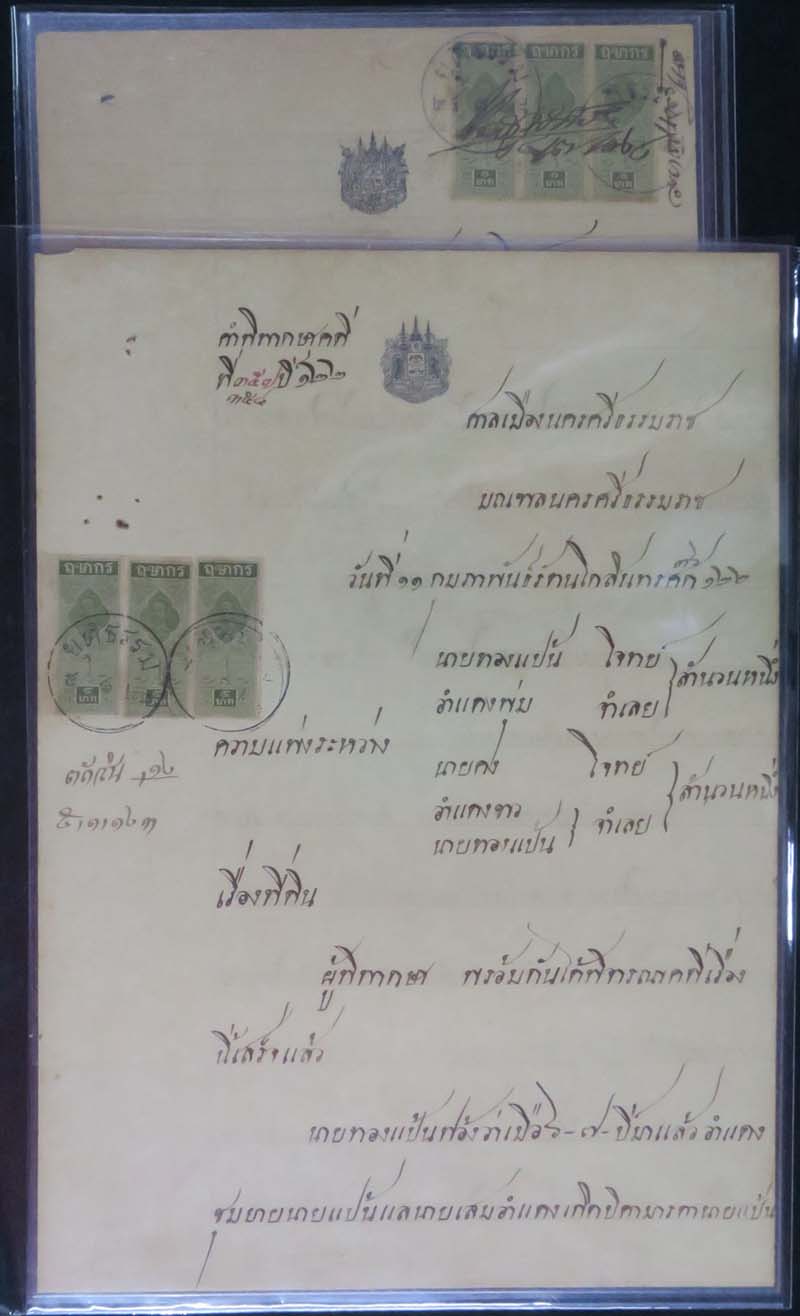 ฤชากร ฤชากร ฤชากร
๑ บาท ๑ บาท ๑ บาท
คำพิพากษาคดี
ที่ ๓๕๗/ปี ๑๒๒
๓๕๔
ศาลเมืองนครศรีธรรมราช
มณฑลนครศรีธรรมราช
วันที่ ๑๑ กุมภาพันธ์รัตนโกสินทรศก ๑๒๒
ฤชากร ฤชากร ฤชากร
บาท บาท บาท
ยุติธรรม
นายทองแป้น โจทย์ สำนวนหนึ่ง
อำแดงพุ่ม จำเลย
ความแพ่งระหว่าง
นายคง โจทย์ สำนวนหนึ่ง
อำแดงขาว จำเลย
นายทองแป้น
เรื่องที่ดิน
ผู้พิพากษา พร้อมกันได้พิจารณาคดีเรื่อง
นี้เสร็จแล้ว
นายทองแป้นฟ้องว่าเมื่อ ๖-๗-ปีมาแล้ว อำแดง
ชุมยายนายแป้นแลนายเสมอำแดงเกิดบิดามารดานายแป้น